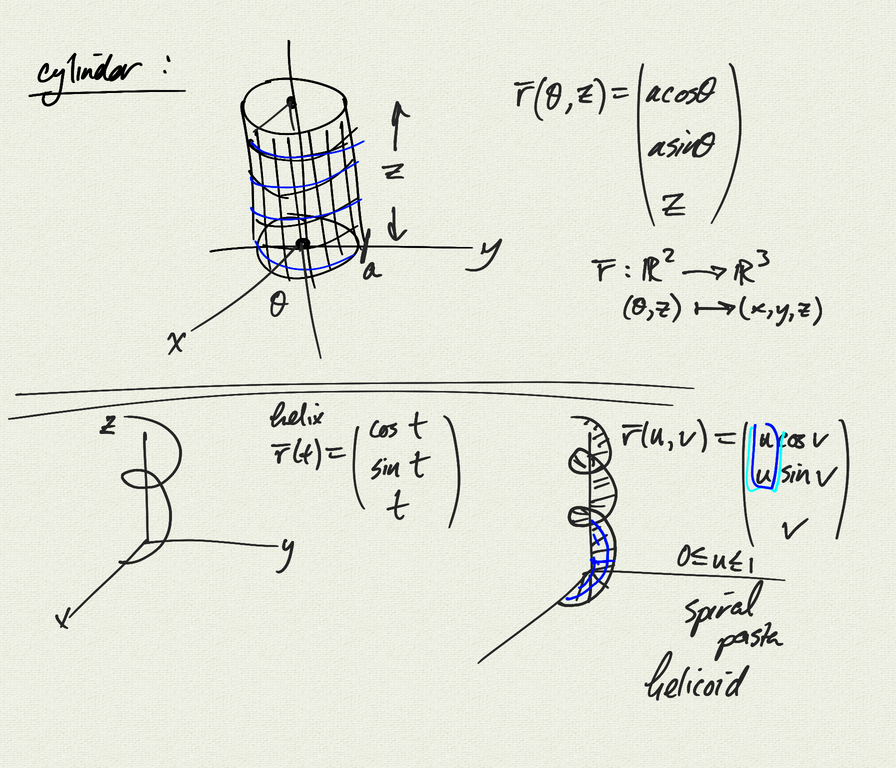 cylinder :
r̅(θ,z) = (acosθ
asinθ
z)
z
y
a
θ
x
r̅ : ℝ² → ℝ³
(θ,z) ↦ (x,y,z)
z
helix
r̅(t) = (cos t
sin t
t)
y
x
r̅(u,v) = (u cos v
u sin v
v)
0≤u≤1
spiral
pasta
helicoid